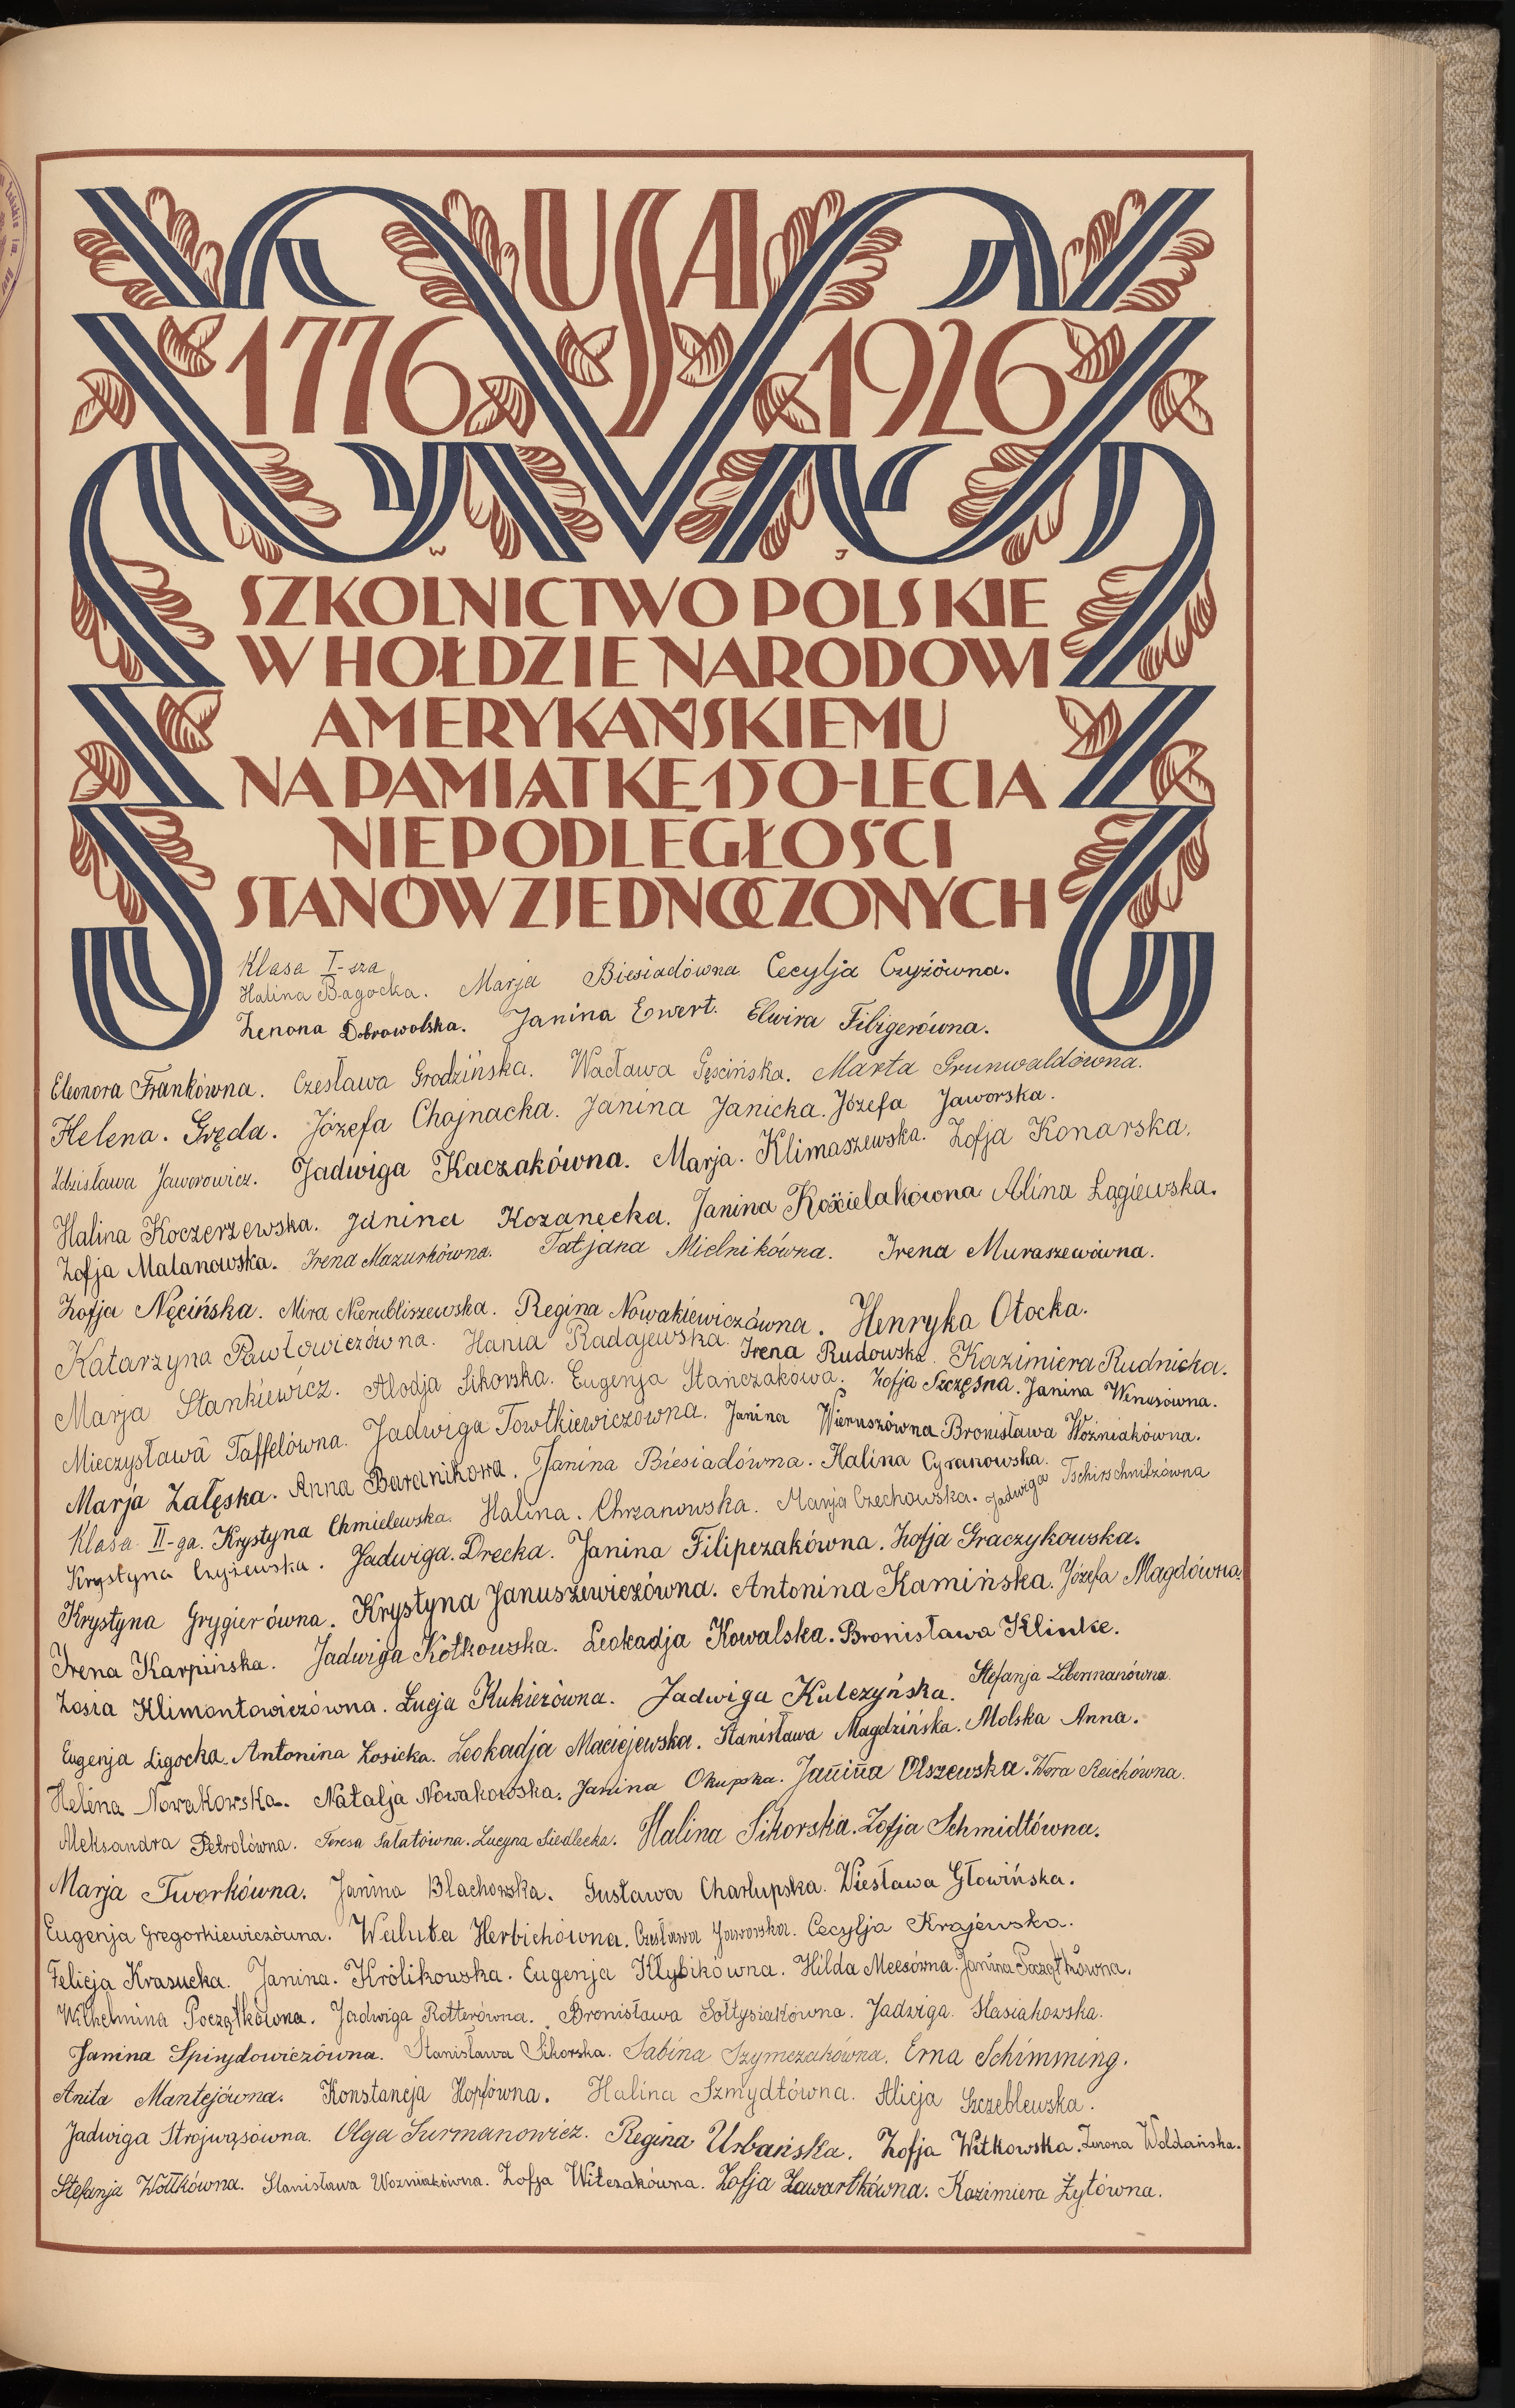 USA
1776 1926
W J
SZKOLNICTWO POLSKIE
W HOŁDZIE NARODOWI
AMERYKAŃSKIEMU
NA PAMIĄTKĘ 150-LECIA
NIEPODLEGŁOŚCI
STANÓW ZJEDNOCZONYCH
Klasa I-sza
Halina Bagocka. Marja Biesiadówna Cecylja Czyżówna.
Zenona Dobrowolska. Janina Ewert. Elwira Filigerówna.
Eleonora Frankówna. Czesława Grodzińska. Wacława Gęścińska. Marta Grunwaldówna.
Helena. Gręda. Józefa Chojnacka. Janina Janicka. Józefa Jaworska.
Zdzisława Jaworowicz. Jadwiga Kaczakówna. Marja. Klimaszewska. Zofja Konarska.
Halina Koczerzewska. Janina Kozanecka. Janina Kościelakówna Alina Łągiewska.
Zofja Malanowska. Irena Mazurkówna. Tatjana Mielnikówna. Irena Muraszewówna.
Zofja Nęcińska. Mira Nierubliszewska. Regina Nowakiewiczówna. Henryka Otocka.
Katarzyna Pawłowiczówna. Hania Radajewska. Irena Rudowska. Kazimiera Rudnicka.
Marja Stankiewicz. Alodja Sikorska. Eugenja Stańczakówa. Zofja Szczęsna. Janina Wenusówna.
Mieczysława Taffelówna. Jadwiga Towtkiewiczówna. Janina Wieruszówna Bronisława Woźniakówna.
Marja Załęska. Anna Baranikowa. Janina Biesiadówna. Halina Cyranowska.
Klasa II-ga. Krystyna Chmielewska. Halina. Chrzanowska. Marja Czechowska. Jadwiga Tschirschnitzówna
Krystyna Czyżewska. Jadwiga. Drecka. Janina Filipczakówna. Zofja Graczykowska.
Krystyna Grygierówna. Krystyna Januszewiczówna. Antonina Kamińska. Józefa Magdówna.
Irena Karpińska. Jadwiga Kotkowska. Leokadja Kowalska. Bronisława Klinke.
Zosia Klimontowiczówna. Łucja Kukierówna. Jadwiga Kulczyńska. Stefanja Libermanówna.
Eugenja Ligocka. Antonina Łosicka. Leokadja Maciejewska. Stanisława Magdzińska. Molska Anna.
Helena Nowakowska. Natalja Nowakowska. Janina Okupska. Janina Olszewska. Wera Reichówna.
Aleksandra Petrolówna. Teresa Sałatówna. Lucyna Siedlecka. Halina Sikorska. Zofja Schmidtówna.
Marja Tworkówna. Janina Blachowska. Gustawa Charłupska. Wiesława Głowińska.
Eugenja Gregorkiewiczówna. Waluta Herbichówna. Czesława Jaworska. Cecylja Krajewska.
Felicja Krasucka. Janina. Królikowska. Eugenja Kłybikówna. Hilda Meesówna. Janina Początkówna.
Wilhelmina Początkówna. Jadwiga Rotterówna. Bronisława Sołtysiakówna. Jadwiga. Stasiakowska.
Janina Spirydowiczówna. Stanisława Sikorska. Sabina Szymczakówna. Erna Schimming.
Anita Mantejówna. Konstancja Hopfówna. Halina Szmydtówna. Alicja Szczeblewska.
Jadwiga Strojwąsówna. Olga Surmanowicz. Regina Urbańska. Zofja Witkowska. Zenona Woldańska.
Stefanja Wółkówna. Stanisława Woźniakówna. Zofja Witczakówna. Zofja Zawartkówna. Kazimiera Żytówna.